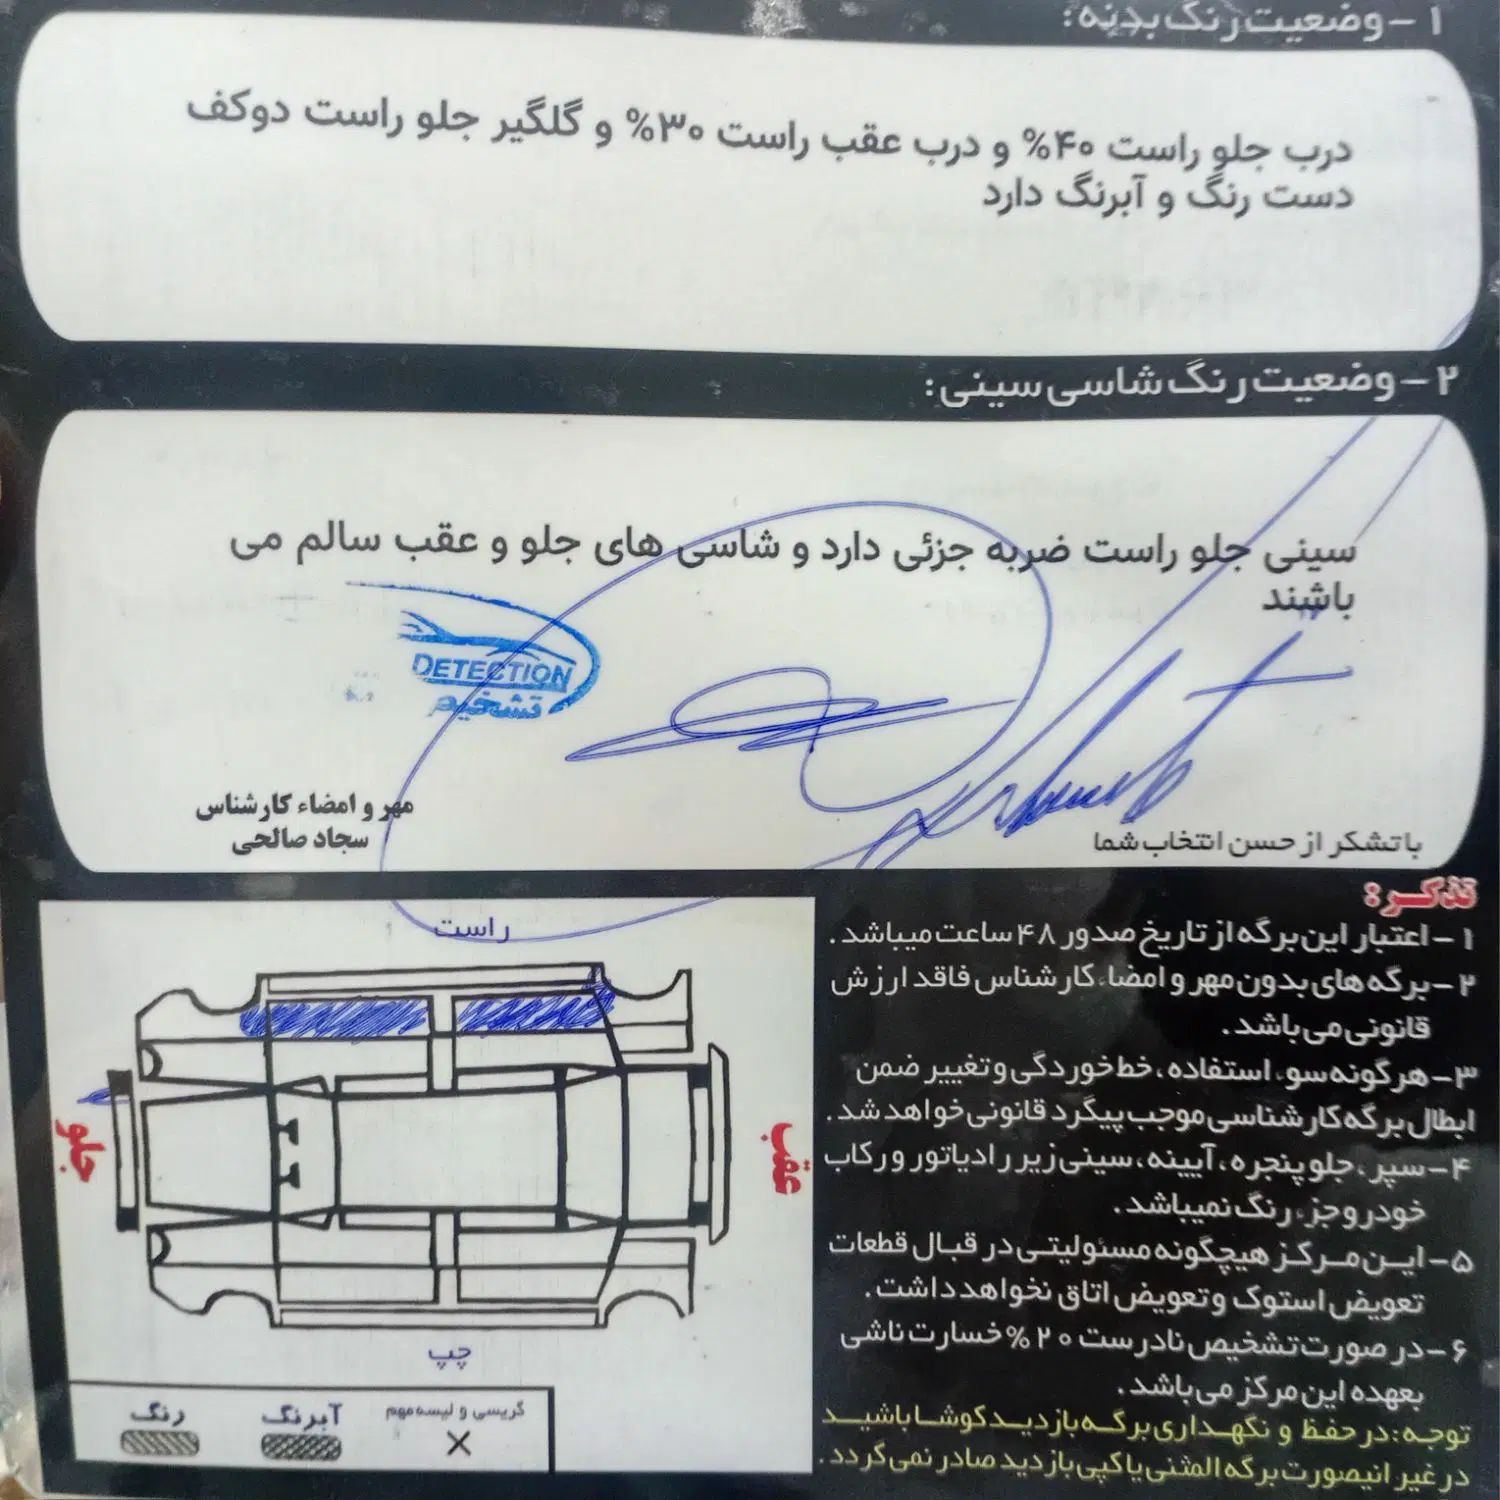 ۱ - وضعیت رنگ بدنه:
درب جلو راست ۴۰% و درب عقب راست ۳۰% و گلگیر جلو راست دوکف
دست رنگ و آبرنگ دارد
۲ - وضعیت رنگ شاسی سینی:
سینی جلو راست ضربه جزئی دارد و شاسی های جلو و عقب سالم می
باشند
DETECTION
تشخیص
مهر و امضاء کارشناس
سجاد صالحی
با تشکر از حسن انتخاب شما
تذکر:
۱ - اعتبار این برگه از تاریخ صدور ۴۸ ساعت میباشد.
۲ - برگه های بدون مهر و امضاء کارشناس فاقد ارزش
قانونی می باشد.
۳ - هرگونه سوء استفاده، خط خوردگی و تغییر ضمن
ابطال برگه کارشناسی موجب پیگرد قانونی خواهد شد.
۴ - سپر، جلو پنجره، آیینه، سینی زیر رادیاتور و رکاب
خودرو جزء رنگ نمیباشد.
۵ - این مرکز هیچگونه مسئولیتی در قبال قطعات
تعویض استوک و تعویض اتاق نخواهد داشت.
۶ - در صورت تشخیص نادرست ۲۰% خسارت ناشی
بعهده این مرکز می باشد.
توجه: در حفظ و نگهداری برگه بازدید کوشا باشید
در غیر اینصورت برگه المثنی یا کپی بازدید صادر نمی گردد.
راست
جلو
عقب
چپ
رنگ
آبرنگ
گریسی و لیسه مهم